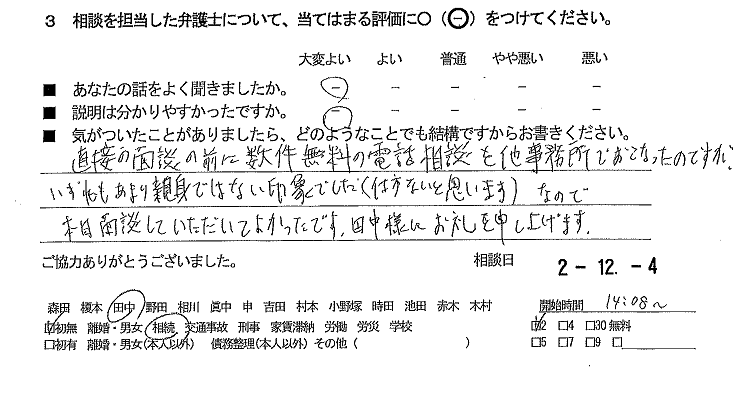 3 相談を担当した弁護士について、当てはまる評価に○（㊀）をつけてください。
大変よい よい 普通 やや悪い 悪い
■ あなたの話をよく聞きましたか。 － － － － －
■ 説明は分かりやすかったですか。 － － － － －
■ 気がついたことがありましたら、どのようなことでも結構ですからお書きください。
直接の面談の前に数件無料の電話相談を他事務所でおこなったのですが、
いずれもあまり親身ではない印象でした（仕方ないと思います）なので
本日面談していただいてよかったです。田中様にお礼を申し上げます。
ご協力ありがとうございました。 相談日 2-12.-4
森田 榎本 田中 野田 相川 眞中 申 吉田 村本 小野塚 時田 池田 赤木 木村 開始時間 14:08～
☑初無 離婚・男女 相続 交通事故 刑事 家賃滞納 労働 労災 学校 ☑2 □4 □30 無料
□初有 離婚・男女(本人以外) 債務整理(本人以外) その他（ ） □5 □7 □9 □